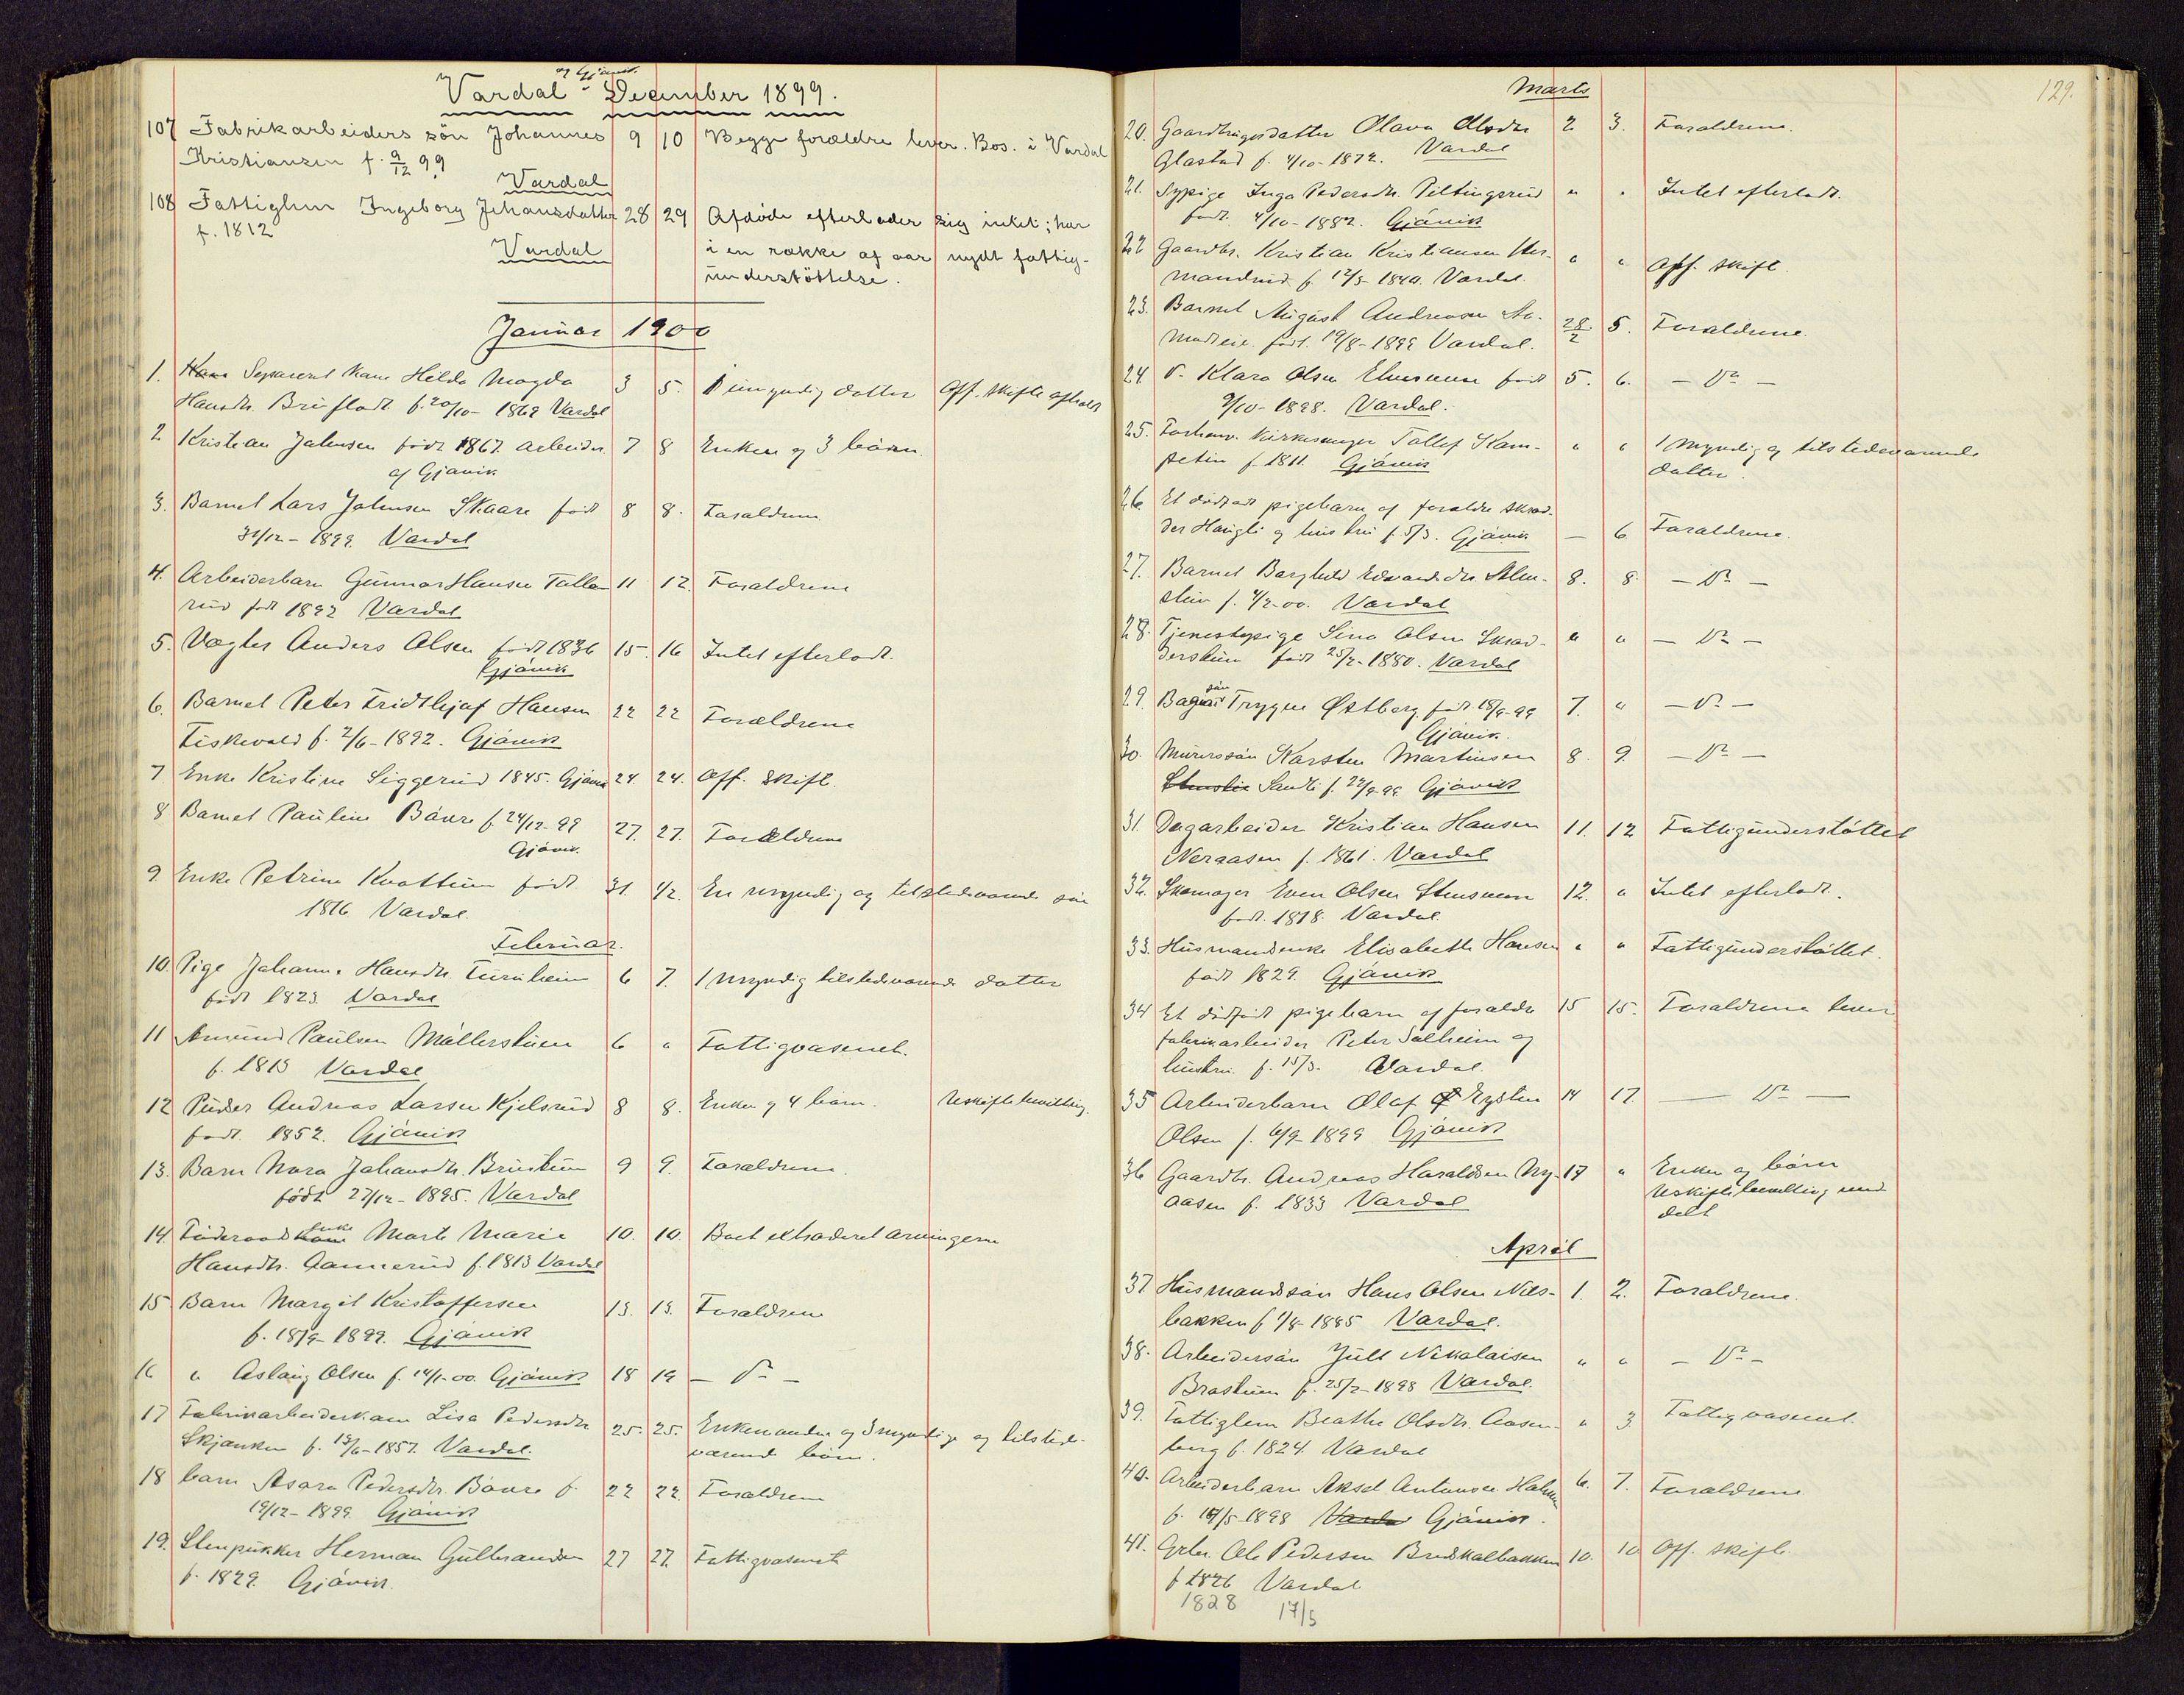 og Gjøvik.
Vardal - December 1899.
107 Fabrikarbeiders søn Johannes 9 10 Begge forældre lever. Bos. i Vardal
Kristiansen f. 9/12 99
Vardal
108 Fattiglem Ingeborg Johansdatter 28 29 Afdøde efterlader sig intet; har
f. 1812
Vardal i en række af aar nydt fattig-
understøttelse.
Januar 1900
1. Separeret Kone Helda Magda 3 5. 1 umyndig datter Off. skifte afholdt
Hansdtr. Briflodt f. 20/10 - 1869 Vardal
2 Kristian Johnsen født 1867. arbeider 7 8 Enken og 3 børn.
af Gjøvik
3. Barnet Lars Johnsen Skaare født 8 8. Forældrene
31/12 - 1899. Vardal
4. Arbeiderbarn Gunnar Hansen Tolle- 11 12. Forældrene
rud født 1892 Vardal
5. Vægter Anders Olsen født 1836 15. 16 Intet efterladt.
Gjøvik
6. Barnet Peter Fridthjof Hansen 22 22 Forældrene
Fiskevold f. 2/6 - 1892. Gjøvik
7 Enke Kristine Siggerud 1845. Gjøvik 24 24. Off. skift.
8 Barnet Pauline Bøvre f. 24/12-99 27. 27. Forældrene
Gjøvik.
9. Enke Petrine Kvattum født 31. 1/2. En myndig og tilstedeværende søn
1816 Vardal.
Februar.
10. Pige Johanne Hansdtr. Turnheim 6 7. 1 myndig tilstedeværende datter
født 1823. Vardal
11 Amund Paulsen Møllerstuen 6 " Fattigvæsenet.
f. 1813 Vardal
12 Pudser Andreas Larsen Kjelsrud 8 8. Enken og 4 børn. Uskiftebevilling.
født. 1852. Gjøvik
13. Barn Nora Johansdtr. Brustuen 9 9. Forældrene.
født 27/12 - 1895. Vardal
enke
14. Føderaadskone Marte Marie 10. 10. Boet extraderet arvingerne
Hansdtr. Aannerud f. 1813 Vardal
15 Barn Margit Kristoffersen 13. 13. Forældrene
f. 18/9 - 1899. Gjøvik
16 " Aslaug Olsen f. 14/1-00. Gjøvik 18 19 - Do -
17 Fabrikarbeiderkone Lisa Pedersdtr 25. 25. Enkemanden og 3 myndige og tilstede-
Skjønken f. 13/6 - 1857. Vardal. værende børn.
18 barn Asora Pedersdtr. Bøvre f. 22 22. Forældrene
19/12 - 1899. Gjøvik
19. Stenpukker Herman Gulbrandsen 27 27. Fattigvæsenet
f. 1829. Gjøvik.
129.
Marts
20. Gaardbrugerdatter Olava Olsdtr 2 3. Forældrene.
Glæstad f. 4/10 - 1872. Vardal
21. Sypige Inga Pedersdtr. Piltingsrud " " Intet efterladt.
født. 4/10 - 1882. Gjøvik
22 Gaardbr. Kristian Kristiansen Her- " " Off. skift.
mandrud f. 12/5 - 1840. Vardal.
23. Barnet August Andreasen 28/2 5. Forældrene.
født. 19/8 - 1899 Vardal.
24. D. Klara Olsen født 5. 6. - Do -
9/10 - 1898. Vardal.
25. Forhenv. Kirkesanger Tollef " " 1 myndig og tilstedeværende
f. 1811. Gjøvik datter.
26. Et dødfødt pigebarn af forældre skræd-
der Haugli og hustru f. 5/3. Gjøvik - 6 Forældrene.
27. Barnet Borghild Edvardsdtr. Alm- 8. 8 - Do -
f. 4/2-00. Vardal
28. Tjenestepige Sina Olsen Skræd- " " - Do -
derstuen født 25/2 - 1880. Vardal
søn
29. Bager Trygve Østberg født 18/9-99 7. " - Do -
Gjøvik.
30. Murersøn Karsten Martinsen 8. 9. - Do -
f. 22/9-99 Gjøvik
31. Dagarbeider Kristian Hansen 11. 12 Fattigunderstøttet
Neraasen f. 1861. Vardal
32. Skomager Even Olsen 12. " Intet efterladt.
født. 1818. Vardal.
33. Husmandsenke Elisabeth Hansen " " Fattigunderstøttet.
født 1829. Gjøvik
34 Et dødfødt pigebarn af forældre 15 15. Forældrene lever
fabrikarbeider Peter Solheim og
hustru. f. 15/3. Vardal.
35 Arbeiderbarn Olaf Eysten 14 17. - Do -
Olsen f. 6/9 1899 Gjøvik
36 Gaardbr. Andreas Haraldsen Ny- 17 " Enken og børn
aasen f. 1833 Vardal Uskiftebevilling med-
delt
April
37 Husmandssøn Hans Olsen 1. 2. Forældrene.
bakken f 1/8 1885 Vardal.
38. Arbeidersøn Jull Nikolaisen " " - Do -
Brastuen f. 25/2-1898 Vardal.
39. Fattiglem Beathe Olsdtr. Aasen- " 3. Fattigvæsenet.
berg f. 1824. Vardal
40. Arbeiderbarn Aksel Antonsen 6. 7. Forældrene
f. 14/5-1898 Vardal Gjøvik.
41. Ole Pedersen Bredskalbakken 10. 10 Off. skifte.
f 1826 Vardal
1828 17/5